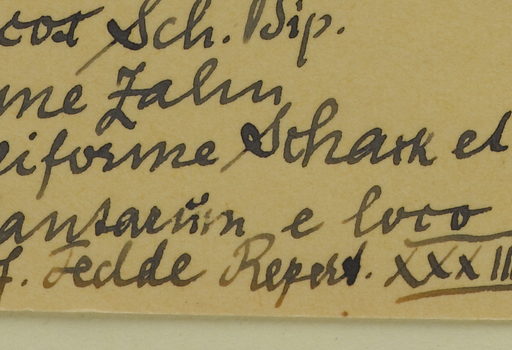 cox Sch. Bip.
me Zahn
eiforme Schack et
antarum e loco
f. Fedde Repert. XXXIII